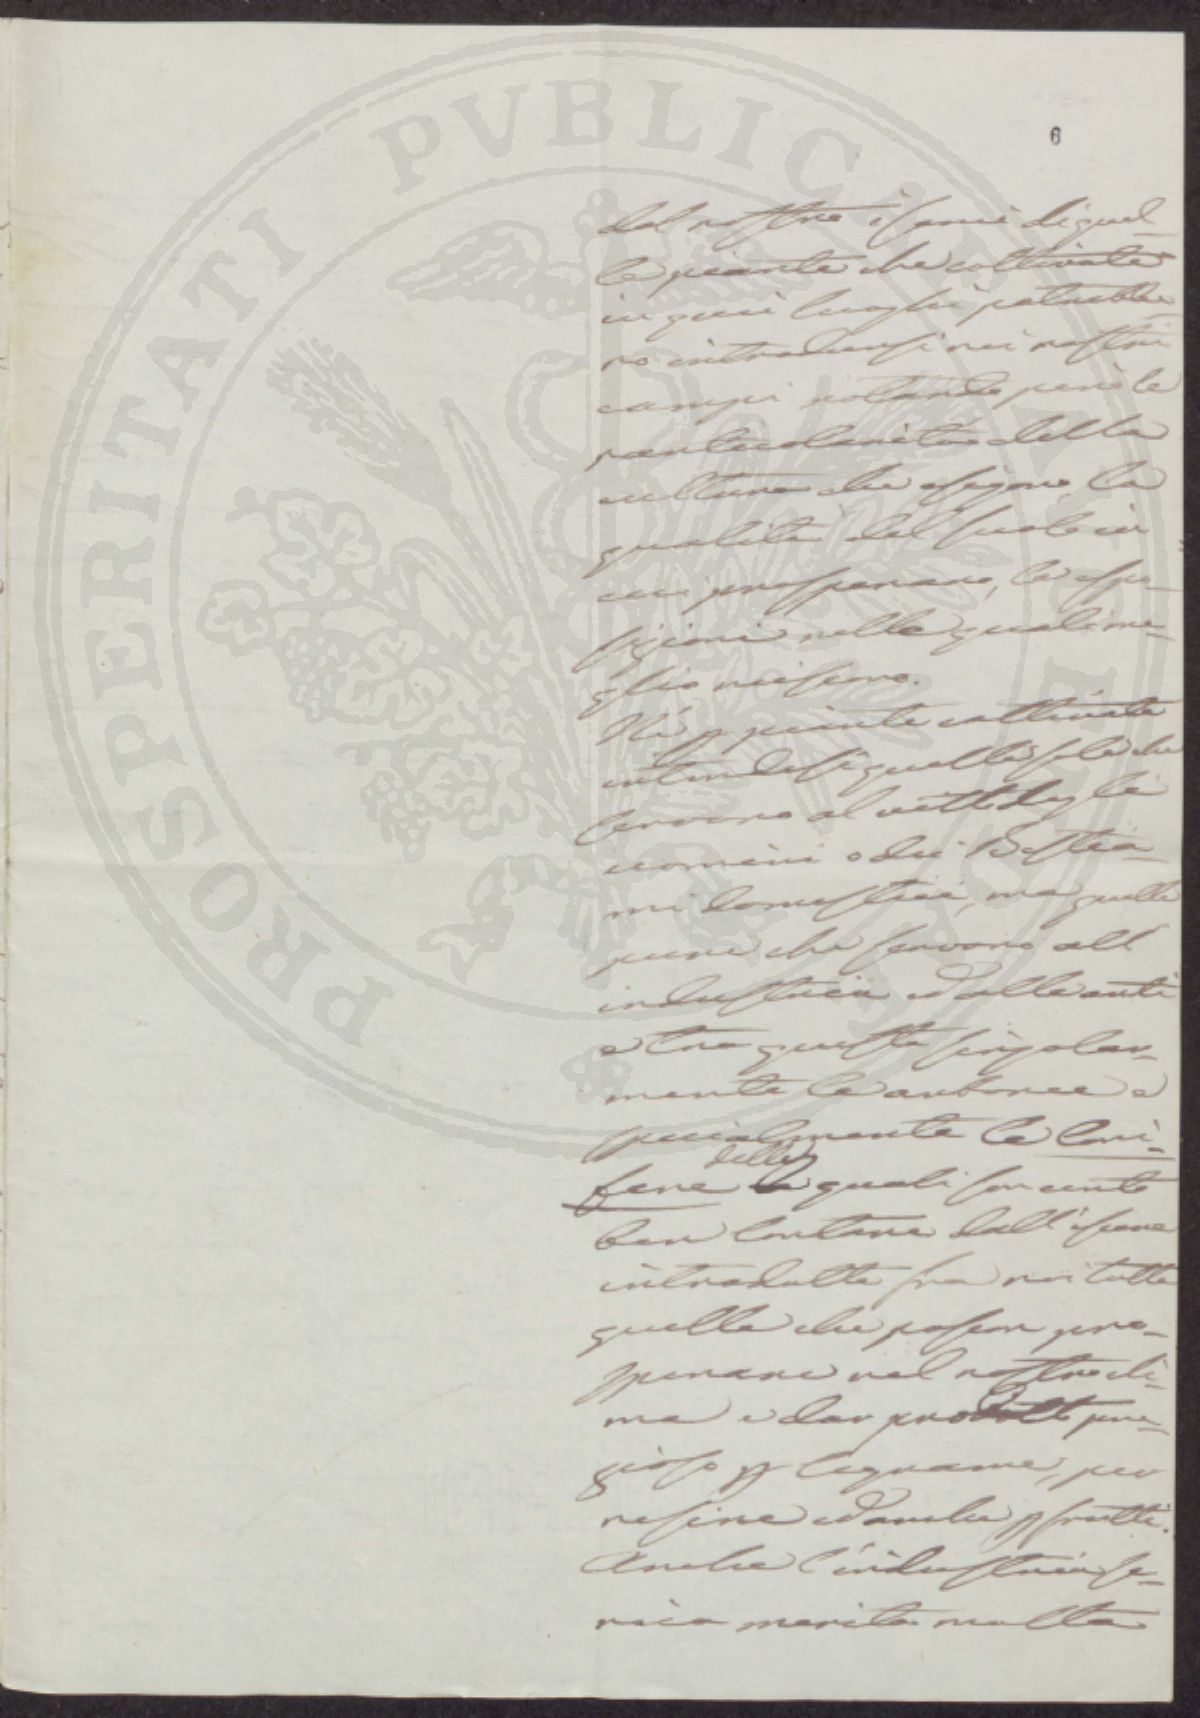 6
PROSPERITATI PVBLICAE
dal nostro i semi di quel-
le piante che coltivate
in quei luoghi potrebbe-
ro introdursi nei nostri
campi notando però le
particolarità della
cultura che esigono la
qualità del suolo in
cui prosperano, le espo-
sizioni nelle quali me-
glio riescono.
Né p piante coltivate
intendesi quelle sole che
servono al vitto degli
uomini o dei Bestia-
mi domestici, ma quelle
pure che servono all'
industria ed alle arti
e tra queste singolar-
mente le arboree e
specialmente le Coni-
fere delle quali siam certo
ben lontani dall'avere
introdotte fra noi tutte
quelle che posson pro-
sperare nel nostro cli-
ma e dar prodotto pre-
gioso p legname, per
resine ed anche p frutti.
Anche l'industria se-
rica merita molta